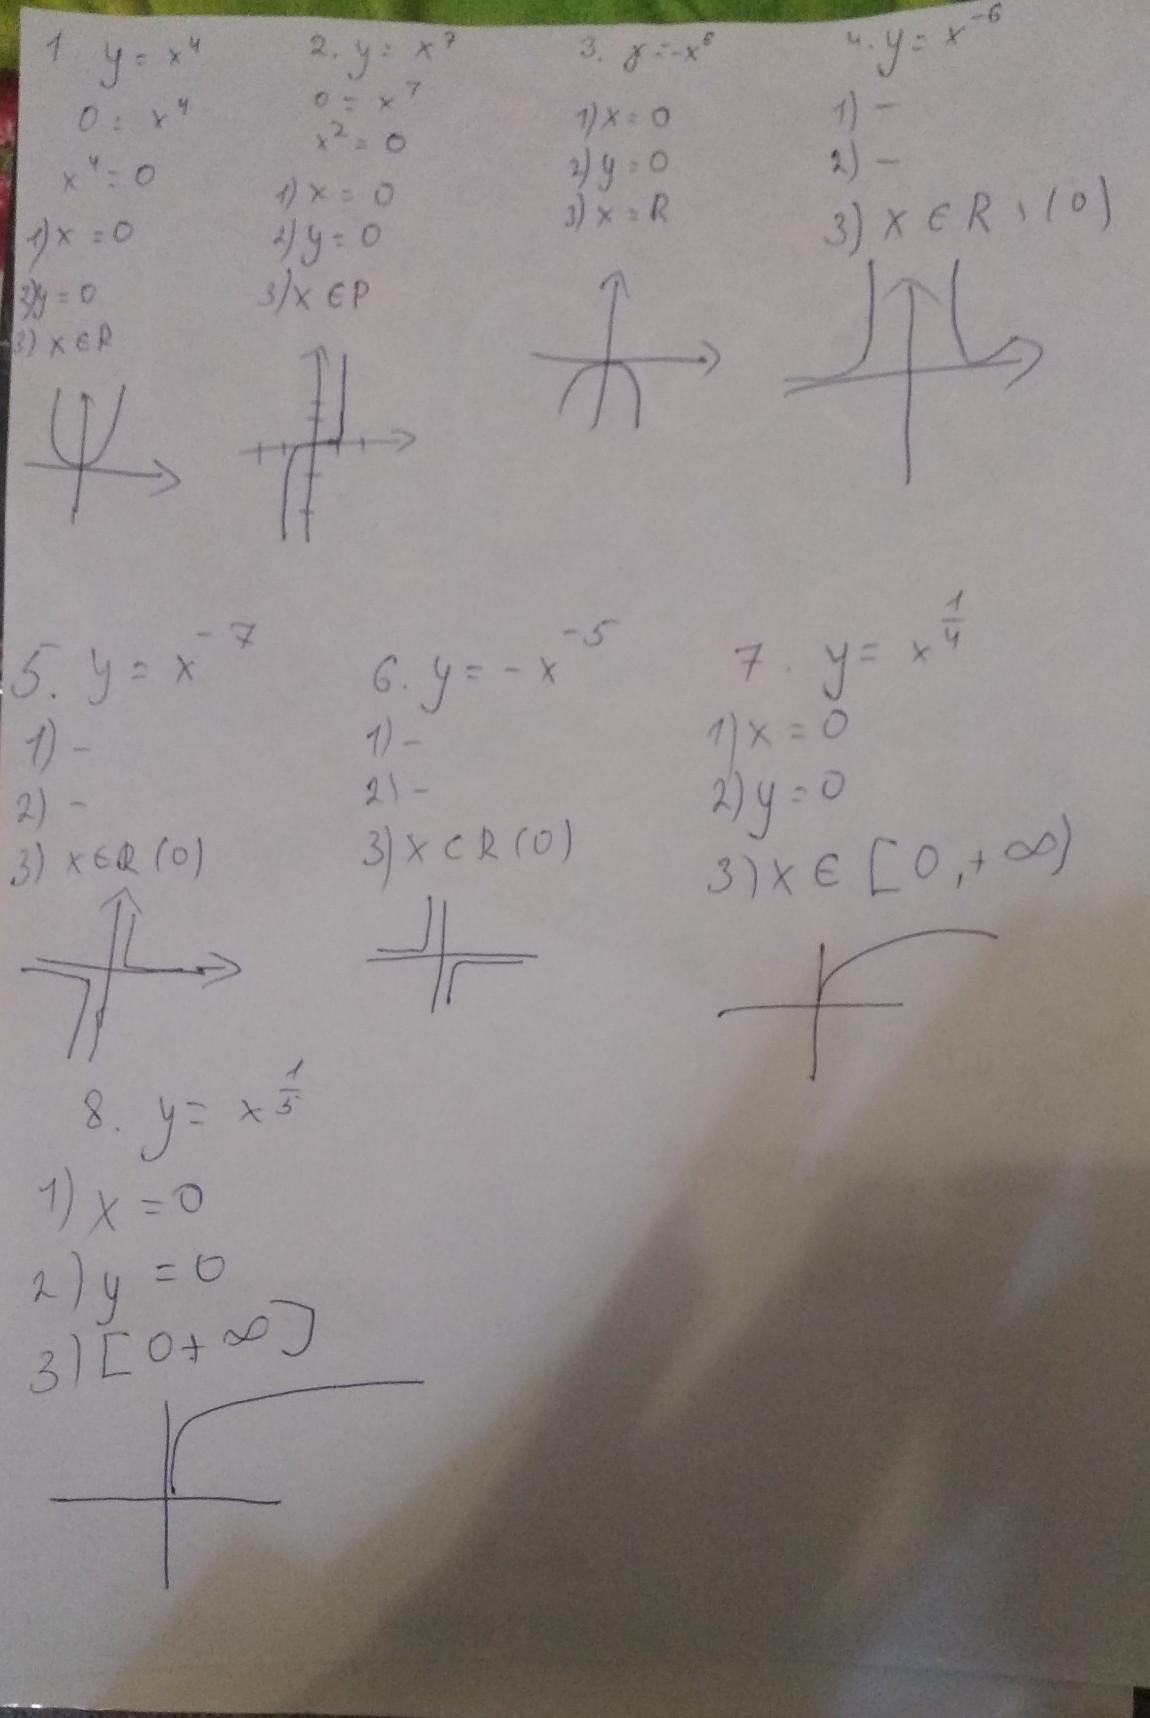 1. y = x⁴
0 = x⁴
x⁴ = 0
1) x = 0
2) y = 0
3) x ∈ R
2. y = x⁷
0 = x⁷
x² = 0
1) x = 0
2) y = 0
3) x ∈ P
3. y = -x⁶
1) x = 0
2) y = 0
3) x = R
4. y = x⁻⁶
1) -
2) -
3) x ∈ R \ (0)
5. y = x⁻⁷
1) -
2) -
3) x ∈ R (0)
6. y = -x⁻⁵
1) -
2) -
3) x ∈ R (0)
7. y = x^(1/4)
1) x = 0
2) y = 0
3) x ∈ [0, +∞)
8. y = x^(1/5)
1) x = 0
2) y = 0
3) [0 + ∞]